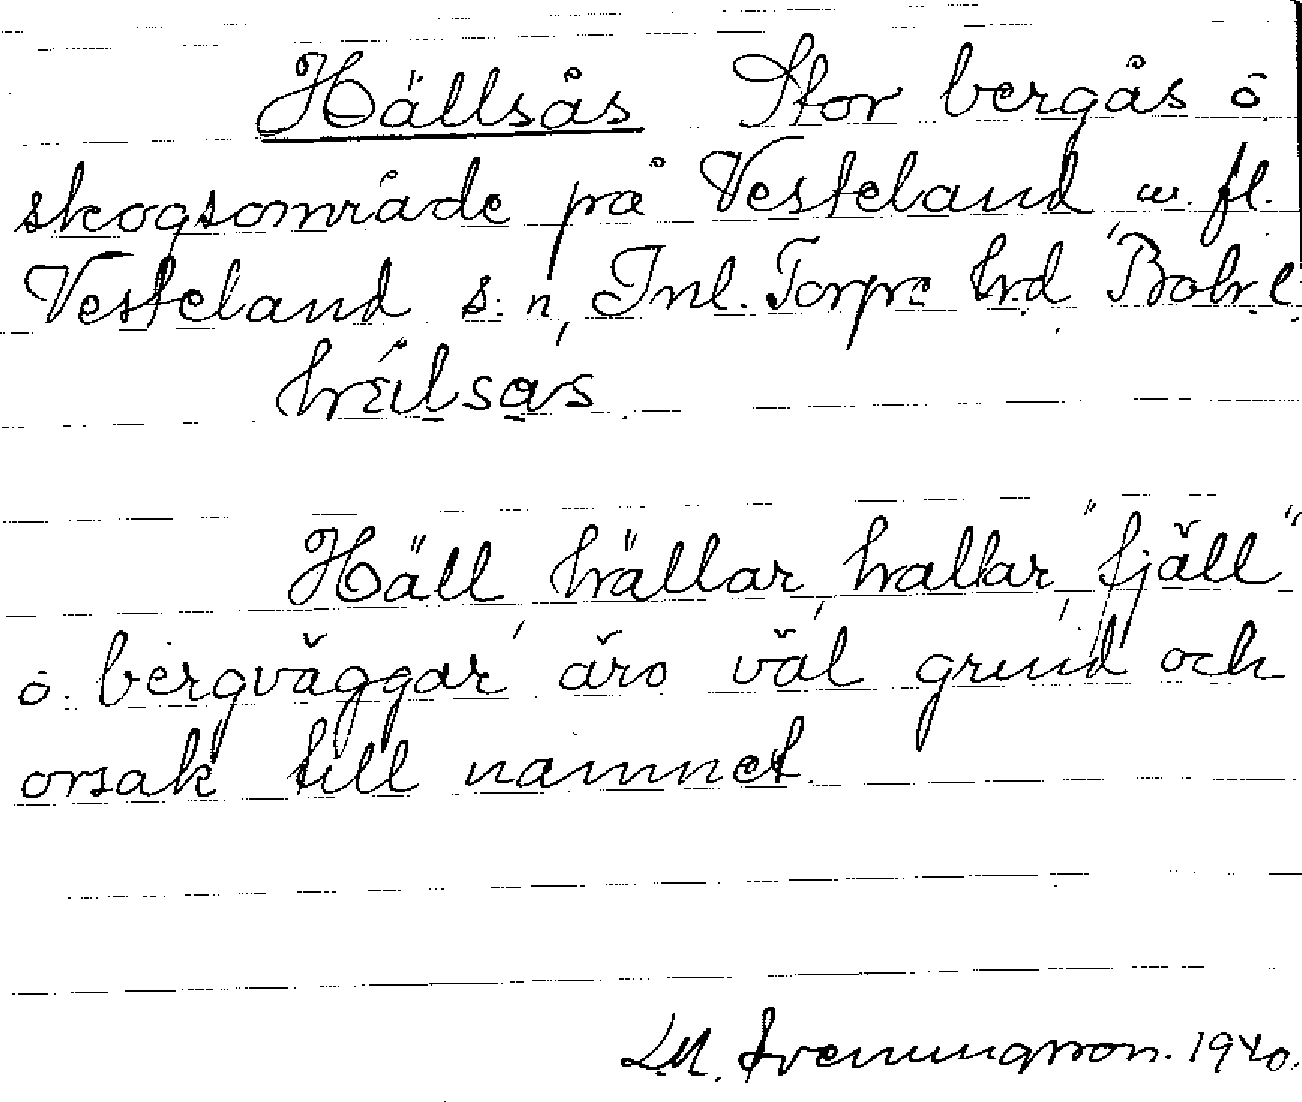 Hällsås Stor bergås ō
skogsområde på Vesteland m. fl.
Vesteland s:n, Inl. Torpe hrd, Bohr l.
hälsås
Häll, hällar, hallar, "fjäll"
ō. bergväggar äro väl grund och
orsak till namnet.
LM. Svenungsson. 1940.